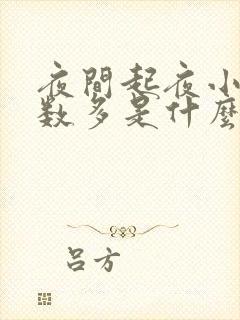 夜間起夜小
数多是什麼
吕方